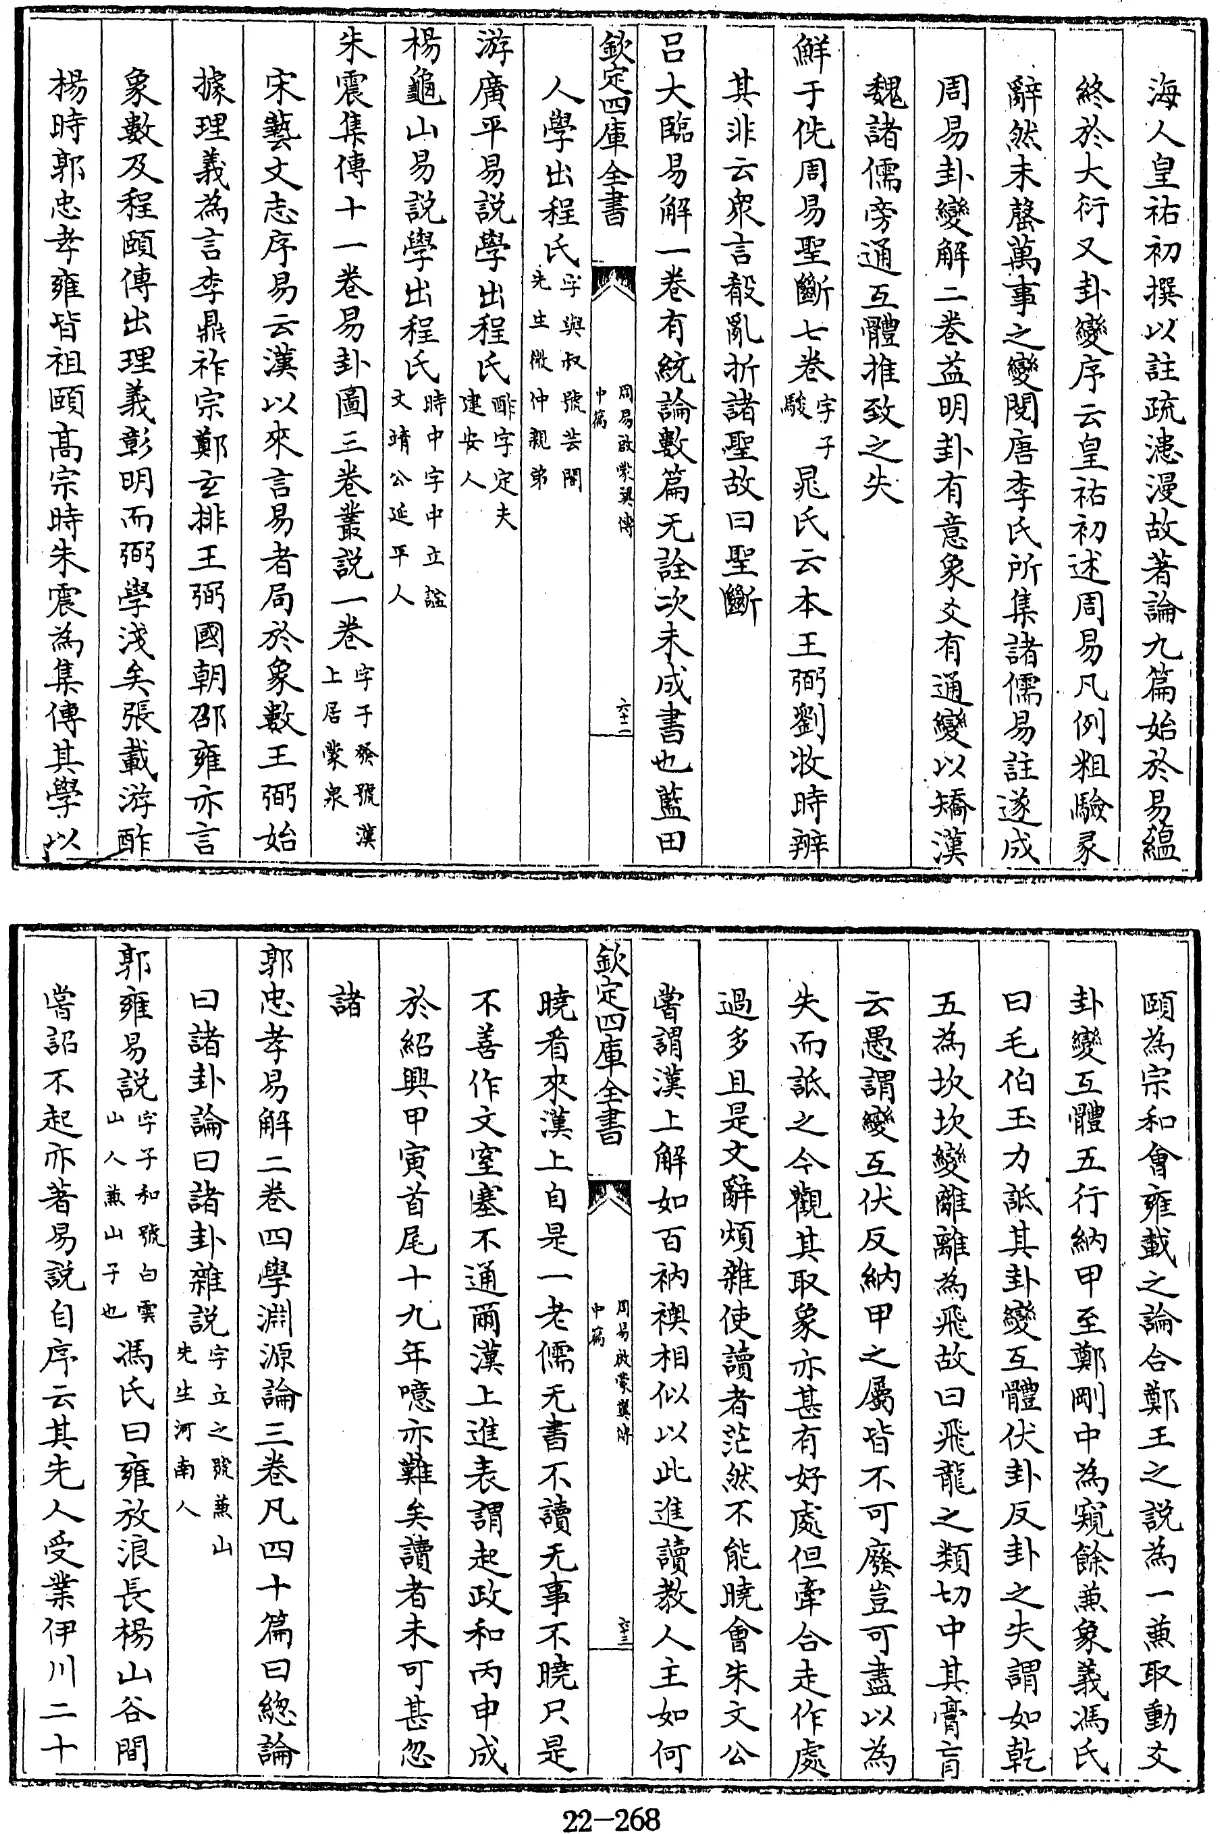 海人皇祐初撰以註疏漶漫故著論九篇始於易蘊
終於大衍又卦變序云皇祐初述周易凡例粗驗彖
辭然未罄萬事之變閱唐李氏所集諸儒易註遂成
周易卦變解二卷益明卦有意象爻有通變以矯漢
魏諸儒旁通互體推致之失
鮮于侁周易聖斷七卷字子駿晁氏云本王弼劉牧時辨
其非云衆言殽亂折諸聖故曰聖斷
呂大臨易解一卷有統論數篇无詮次未成書也藍田
欽定四庫全書
周易啟蒙翼傳
中篇
六十二
人學出程氏字與叔號芸閣先生微仲親弟
游廣平易說學出程氏酢字定夫建安人
楊龜山易說學出程氏時中字中立諡文靖公延平人
朱震集傳十一卷易卦圖三卷叢說一卷字子發號漢上居蒙泉
宋藝文志序易云漢以來言易者局於象數王弼始
據理義為言李鼎祚宗鄭玄排王弼國朝邵雍亦言
象數及程頤傳出理義彰明而弼學淺矣張載游酢
楊時郭忠孝雍皆祖頤高宗時朱震為集傳其學以
頤為宗和會雍載之論合鄭王之說為一兼取動爻
卦變互體五行納甲至鄭剛中為窺餘兼象義馮氏
曰毛伯玉力詆其卦變互體伏卦反卦之失謂如乾
五為坎坎變離離為飛故曰飛龍之類切中其膏肓
云愚謂變互伏反納甲之屬皆不可廢豈可盡以為
失而詆之今觀其取象亦甚有好處但牽合走作處
過多且是文辭煩雜使讀者茫然不能曉會朱文公
嘗謂漢上解如百衲襖相似以此進讀教人主如何
欽定四庫全書
周易啟蒙翼傳
中篇
六十三
曉看來漢上自是一老儒无書不讀无事不曉只是
不善作文窒塞不通爾漢上進表謂起政和丙申成
於紹興甲寅首尾十九年噫亦難矣讀者未可甚忽
諸
郭忠孝易解二卷四學淵源論三卷凡四十篇曰總論
曰諸卦論曰諸卦雜說字立之號兼山先生河南人
郭雍易說字子和號白雲山人兼山子也馮氏曰雍放浪長楊山谷間
嘗詔不起亦著易說自序云其先人受業伊川二十
22-268